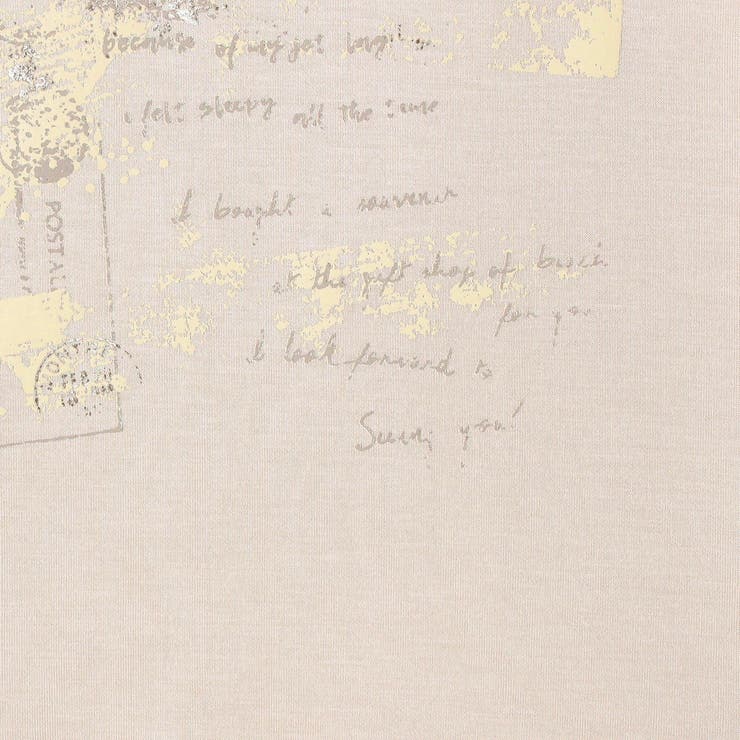 because of my jet lag
i felt sleepy all the time
I bought a souvenir
at the gift shop of
for you
I look forward to
Seeing you!
POSTAL
FEB